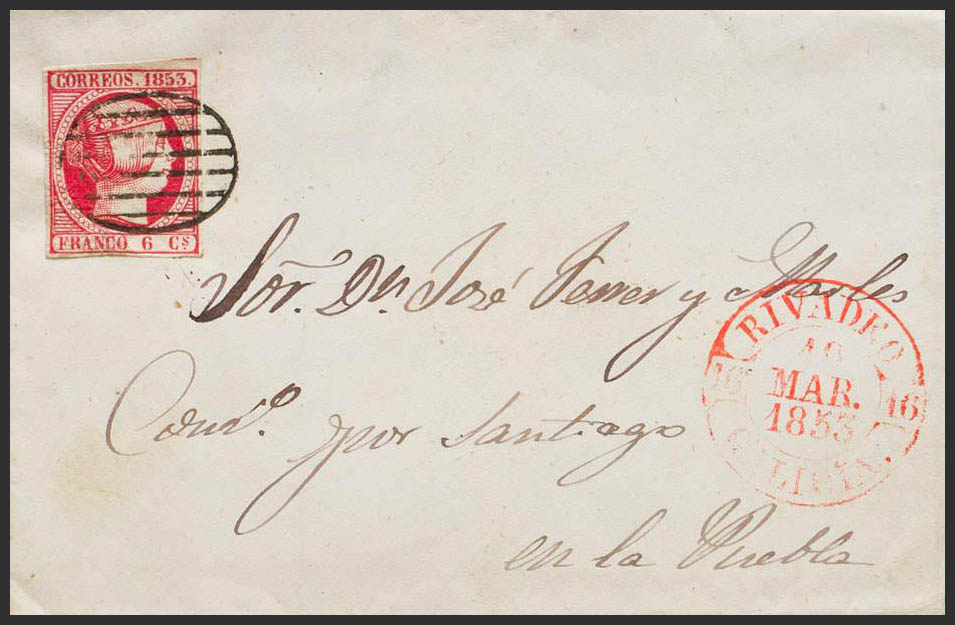 CORREOS. 1853.
FRANCO 6 Cs
Sor. Dn. José Ferrer y Marles
por Santiago
en la Puebla
RIVADEO
10
MAR.
1853
16 16
GALICIA.